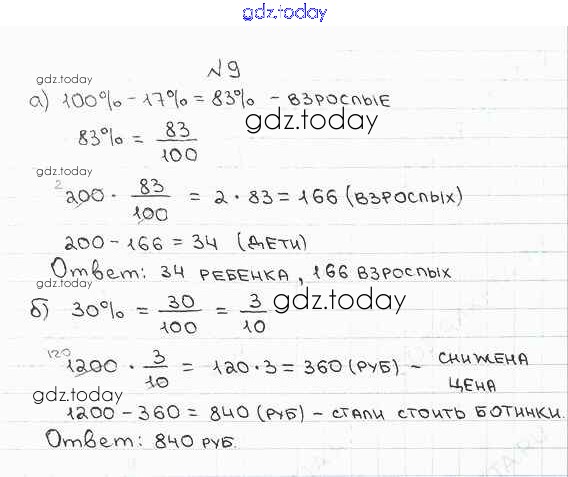 gdz.today
№9
gdz.today
а) 100% - 17% = 83% - ВЗРОСЛЫЕ
83% = 83/100
gdz.today
gdz.today
2
200 · 83/100 = 2 · 83 = 166 (ВЗРОСЛЫХ)
200 - 166 = 34 (ДЕТИ)
Ответ: 34 РЕБЕНКА, 166 ВЗРОСЛЫХ
gdz.today
б) 30% = 30/100 = 3/10
gdz.today
120
1200 · 3/10 = 120 · 3 = 360 (РУБ) - СНИЖЕНА ЦЕНА
gdz.today
1200 - 360 = 840 (РУБ) - СТАЛИ СТОИТЬ БОТИНКИ.
Ответ: 840 РУБ.